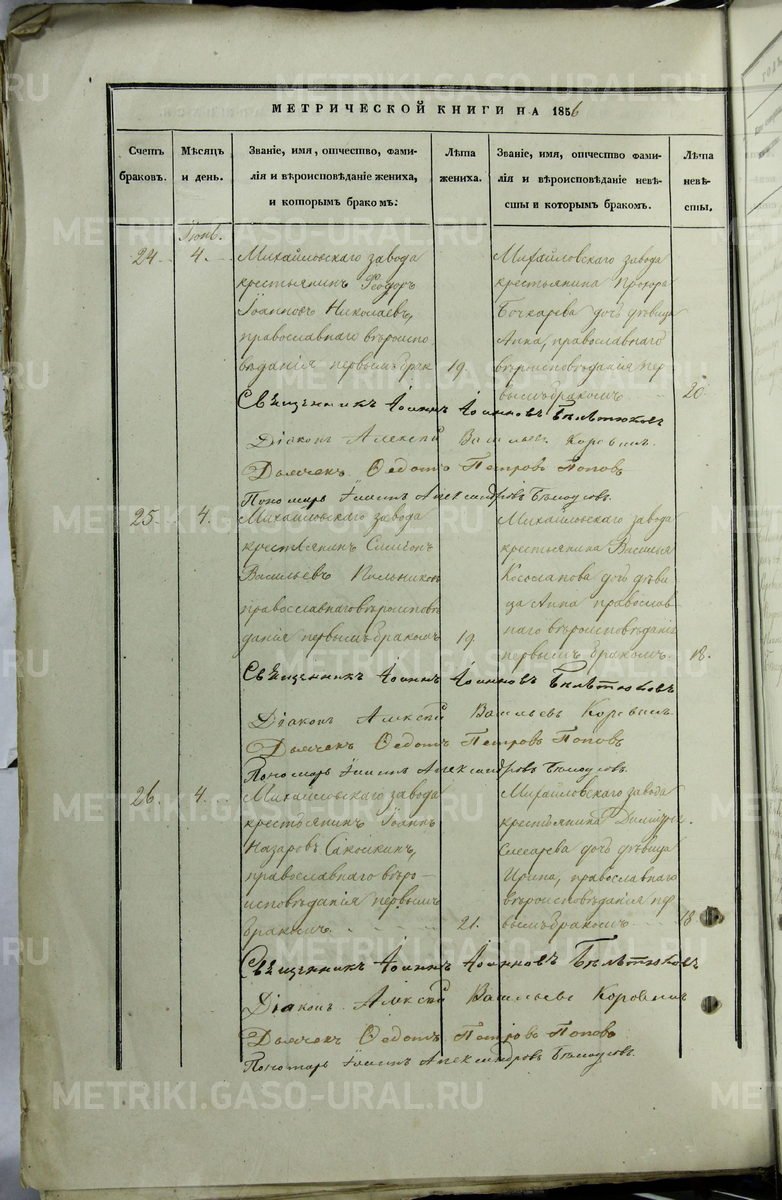 МЕТРИЧЕСКОЙ КНИГИ НА 1856
Счетъ браковъ.
Мѣсяцъ и день.
Званіе, имя, отчество, фами-
лія и вѣроисповѣданіе жениха,
и которымъ бракомъ:
Лѣта жениха.
Званіе, имя, отчество фами-
лія и вѣроисповѣданіе невѣ-
сты и которымъ бракомъ.
Лѣта невѣ-
сты.
24.
4.
Михайловскаго завода
крестьянинъ Ѳеодоръ
Іоанновъ Николаевъ,
православнаго вѣроиспо-
вѣданія первымъ брак
19.
Михайловскаго завода
крестьянина
Бочкарева дочь дѣвица
Анна, православнаго
вѣроисповѣданія пер
вымъ бракомъ
20.
Священникъ Іоаннъ Іоанновъ
Діаконъ Алексѣй Васильевъ Коровинъ.
Дьячекъ Ѳедотъ Петровъ Поповъ
Пономарь Александровъ
25.
4.
Михайловскаго завода
крестьянинъ Симеонъ
Васильевъ
православнаго вѣроисповѣ
данія первымъ бракомъ
19.
Михайловскаго завода
крестьянина Василья
дочь дѣви
ца Анна православ-
наго вѣроисповѣданія
первымъ бракомъ.
18.
Священникъ Іоаннъ Іоанновъ
Діаконъ Алексѣй Васильевъ Коровинъ
Дьячекъ Ѳедотъ Петровъ Поповъ
Пономарь Александровъ
26.
4.
Михайловскаго завода
крестьянинъ Іоаннъ
Назаровъ
православнаго вѣро-
исповѣданія первымъ
бракомъ.
21.
Михайловскаго завода
крестьянина Димитрія
Слесарева дочь дѣвица
Ирина, православнаго
вѣроисповѣданія пер
вымъ бракомъ
18
Священникъ Іоаннъ Іоанновъ
Діаконъ Алексѣй Васильевъ Коровинъ
Дьячекъ Ѳедотъ Петровъ Поповъ
Пономарь Александровъ
METRIKI.GASO-URAL.RU